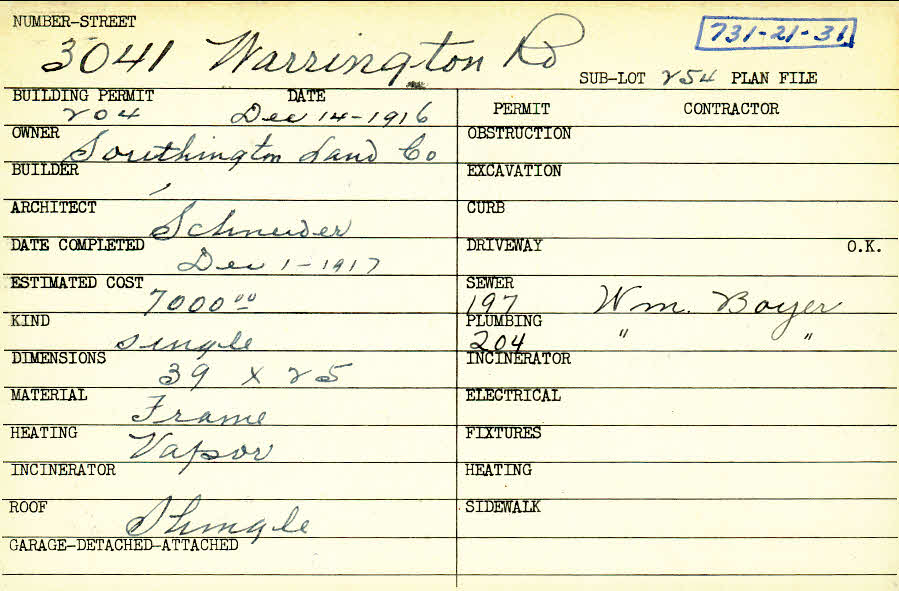 NUMBER-STREET
3041 Warrington Rd
731-21-31
SUB-LOT 254 PLAN FILE
BUILDING PERMIT DATE
204 Dec 14-1916
PERMIT CONTRACTOR
OWNER Southington Land Co
OBSTRUCTION
BUILDER
EXCAVATION
ARCHITECT Schneider
CURB
DATE COMPLETED Dec 1-1917
DRIVEWAY O.K.
ESTIMATED COST 7000.00
SEWER
197 Wm. Boyer
KIND single
PLUMBING
204 " "
DIMENSIONS 39 x 25
INCINERATOR
MATERIAL Frame
ELECTRICAL
HEATING Vapor
FIXTURES
INCINERATOR
HEATING
ROOF Shingle
SIDEWALK
GARAGE-DETACHED-ATTACHED